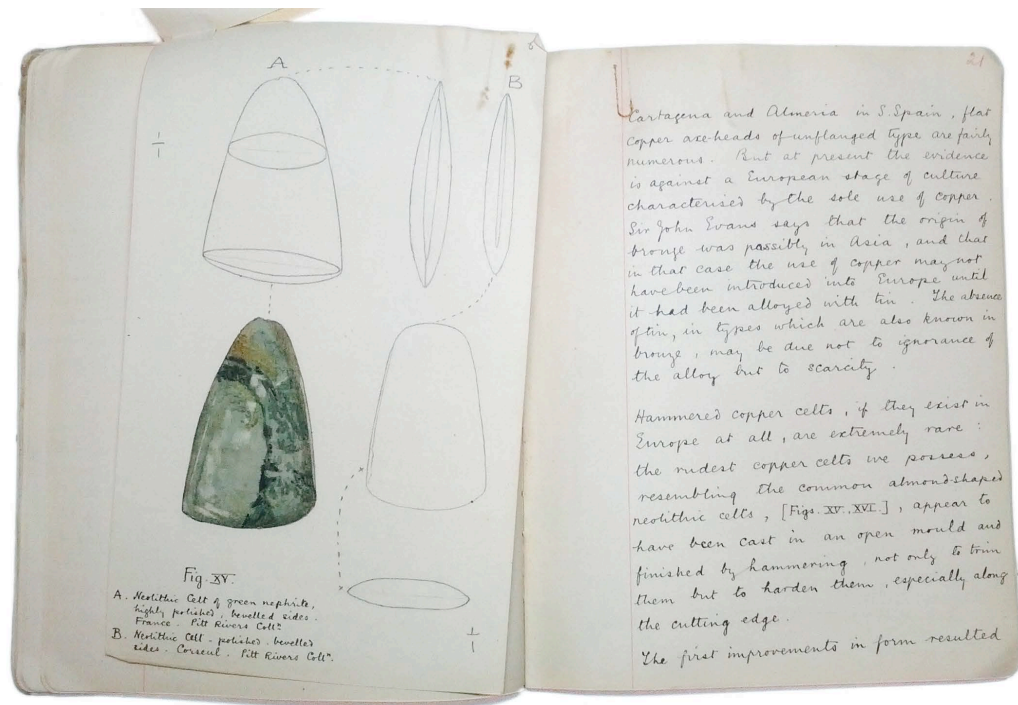 A
B
1
1
Fig. XV.
A. Neolithic Celt of green nephrite,
highly polished, bevelled sides.
France. Pitt Rivers Collⁿ
B. Neolithic Celt - polished - bevelled
sides - Corseul - Pitt Rivers Collⁿ.
1
1
21
Cartagena and Almeria in S. Spain, flat
copper axe-heads of unflanged type are fairly
numerous. But at present the evidence
is against a European stage of culture
characterised by the sole use of copper.
Sir John Evans says that the origin of
bronze was possibly in Asia, and that
in that case the use of copper may not
have been introduced into Europe until
it had been alloyed with tin. The absence
of tin, in types which are also known in
bronze, may be due not to ignorance of
the alloy but to scarcity.
Hammered copper celts, if they exist in
Europe at all, are extremely rare:
the rudest copper celts we possess,
resembling the common almond-shaped
neolithic celts, [Figs. XV., XVI.], appear to
have been cast in an open mould and
finished by hammering, not only to trim
them but to harden them, especially along
the cutting edge.
The first improvements in form resulted